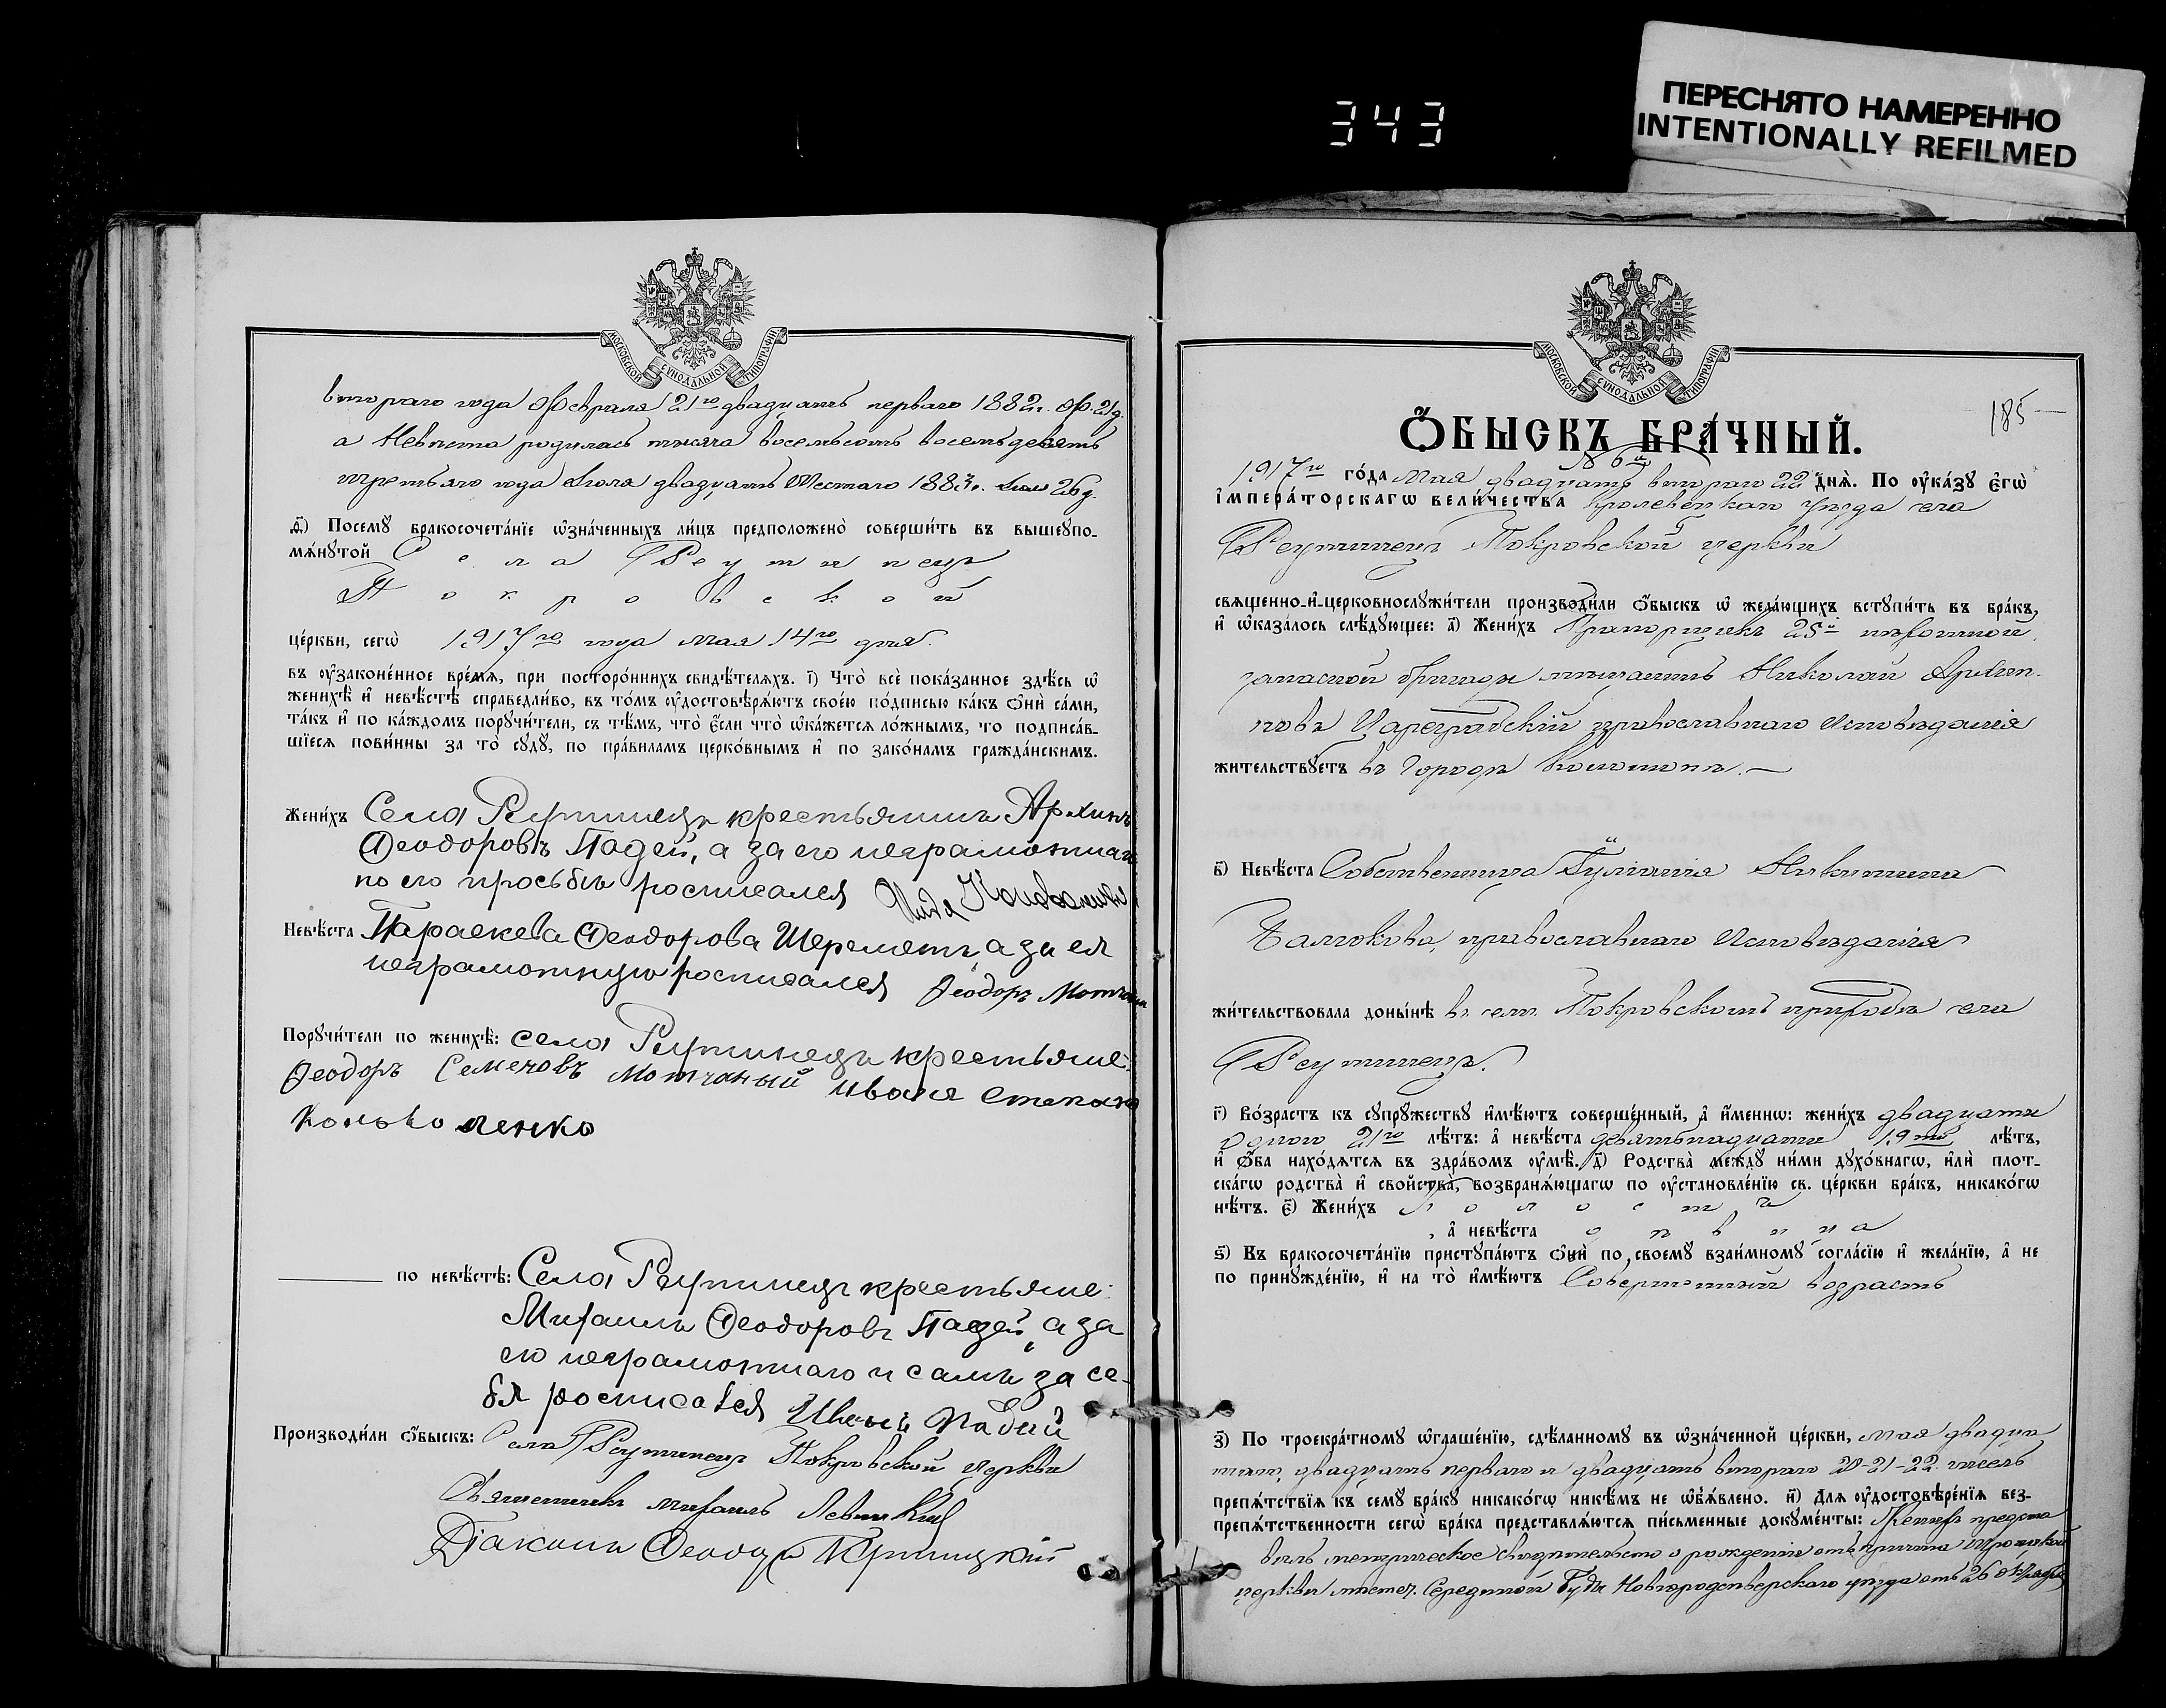 343
ПЕРЕСНЯТО НАМЕРЕННО
INTENTIONALLY REFILMED
МОСКОВСКОЙ СѴНОДАЛЬНОЙ ТИПОГРАФІИ
втораго года Февраля 21го двадцать перваго 1882 г. Ф. 21 д.
а Невѣста родилась тысяча восемьсотъ восемьдесятъ
третьяго года Іюля двадцать Шестаго 1883 г. Іюля 26 д.
д҃) Посемꙋ бракосочета́нїе ѡ҆зна́ченныхъ ли́цъ предположено̀ соверши́ть въ вышеꙋпо-
мѧ́нꙋтой Села Реутинецъ
Покровской
це́ркви, сегѡ̀ 1917го года мая 14го дня.
въ ᲂу҆законе́нное вре́мѧ, при посторо́ннихъ свидѣ́телѧхъ. і҃) Что̀ всѐ пока́занное здѣ́сь ѡ҆
женихѣ̀ и҆ невѣ́стѣ справедли́во, въ то́мъ ᲂу҆достовѣрѧ́ютъ свое́ю по́дписью ка́къ ѻ҆нѝ са́ми,
та́къ и҆ по ка́ждомъ порꙋчи́тели, съ тѣ́мъ, что̀ є҆́сли что̀ ѡ҆ка́жетсѧ ло́жнымъ, то подписа́в-
шїесѧ пови́нны за то̀ сꙋдꙋ̀, по пра́виламъ церко́внымъ и҆ по зако́намъ гражда́нскимъ.
Жени́хъ Села Реутинецъ крестьянинъ Архипъ
Ѳеодоровъ Падей, а за его неграмотнаго
по его просьбѣ росписался
Невѣ́ста Параскева Ѳеодорова Шереметъ, а за ея
неграмотную росписался Ѳеодоръ Мотчаный
Порꙋчи́тели по женихѣ̀: села Реутинецъ крестьяне:
Ѳеодоръ Семеновъ Мотчаный Иванъ Степано
Коноваленко
по невѣ́стѣ: Села Реутинецъ крестьяне:
Михаилъ Ѳеодоровъ Падей, а за
его неграмотнаго и самъ за се-
бя росписался Падей
Производи́ли ѻ҆́быскъ: Села Реутинецъ Покровской церкви
Священникъ Михаилъ Левицкій
Діаконъ Ѳеодоръ Криницкій
МОСКОВСКОЙ СѴНОДАЛЬНОЙ ТИПОГРАФІИ
185
Ѻ҆́БЫСКЪ БРА́ЧНЫЙ.
№ 6й
1917го го́да Мая двадцать втораго 22 днѧ̀. По ᲂу҆ка́зꙋ є҆гѡ̀
і҆мпера́торскагѡ вели́чества Кролевецкаго уѣзда села
Реутинецъ Покровской церкви
свѧщенно-и҆-церковнослꙋжи́тели производи́ли ѻ҆́быскъ ѡ҆ жела́ющихъ встꙋпи́ть въ бра́къ,
и҆ ѡ҆каза́лось слѣ́дꙋющее: а҃) Жени́хъ Прапорщикъ 25й пѣхотной
запасной бригады мѣщанинъ Николай Архип-
повъ Цареградскій православнаго исповѣданія
жительствꙋетъ въ Городѣ Конотопѣ. —
в҃) Невѣ́ста Собственница Іуліанія Никитина
Балюкова, православнаго Исповѣданія
жи́тельствовала доны́нѣ въ семъ Покровскомъ приходѣ села
Реутинецъ.
г҃) Во́зрастъ къ сꙋпрꙋ́жествꙋ и҆мѣ́ютъ соверше́нный, а҆ и҆́меннѡ: жени́хъ двадцати
одного 21го лѣ́тъ: а҆ невѣ́ста девятьнадцати 19ти лѣ́тъ,
и҆ ѻ҆́ба нахо́дѧтсѧ въ здра́вомъ ᲂу҆мѣ̀. д҃) Родства̀ междꙋ̀ ни́ми дꙋхо́внагѡ, и҆лѝ плот-
ска́гѡ родства̀ и҆ свойства̀, возбранѧ́ющагѡ по ᲂу҆становле́нїю св. це́ркви бра́къ, никако́гѡ
нѣ́тъ. є҃) Жени́хъ холостъ
, а҆ невѣ́ста дѣвица
ѕ҃) Въ бракосочета́нїю пристꙋпа́ютъ ѻ҆нѝ по своемꙋ̀ взаи́мномꙋ согла́сїю и҆ жела́нїю, а҆ не
по принꙋжде́нїю, и҆ на то̀ и҆мѣ́ютъ Совершенный возрастъ
з҃) По троекра́тномꙋ ѡ҆глаше́нїю, сдѣ́ланномꙋ въ ѡ҆зна́ченной це́ркви, мая двадца
таго, двадцать перваго и двадцать втораго 20-21-22 чиселъ
препѧ́тствїѧ къ семꙋ̀ бра́кꙋ никако́гѡ никѣ́мъ не ѡ҆б̾ѧ́влено. и҃) Длѧ ᲂу҆достовѣре́нїѧ без-
препѧ́тственности сегѡ̀ бра́ка представлѧ́ютсѧ пи́сьменные докꙋме́нты: Женихъ предста
вилъ метрическое свидѣтельство о рожденіи отъ причта Троицкой
церкви мѣстеч. Серединой Буды Новгородсѣверскаго уѣзда отъ 26